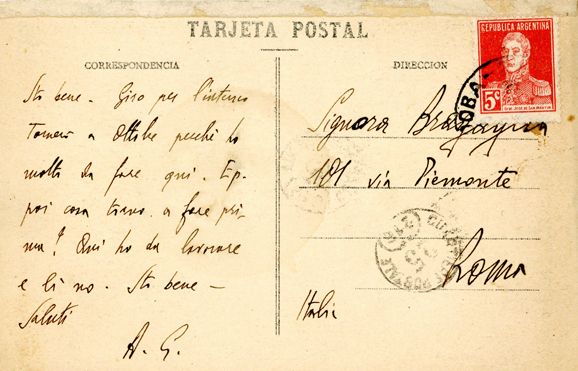 TARJETA POSTAL
CORRESPONDENCIA
Sto bene. Giro per l'interno
Tornerò a Ottobre perché ho
molto da fare qui. E p-
poi cosa torno a fare pri-
ma? Qui ho da lavorare
e lì no. Sto bene —
Saluti
A. G.
DIRECCION
REPUBLICA ARGENTINA
5c
OBA
Signora
101 via Piemonte
Roma
Italia